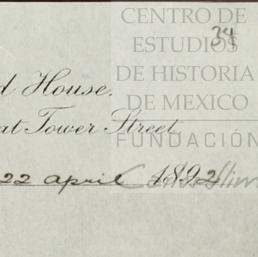 CENTRO DE
34
ESTUDIOS
DE HISTORIA
d House.
DE MEXICO
at Tower Street
FUNDACIÓN
22 april 1892
Carlos Slim